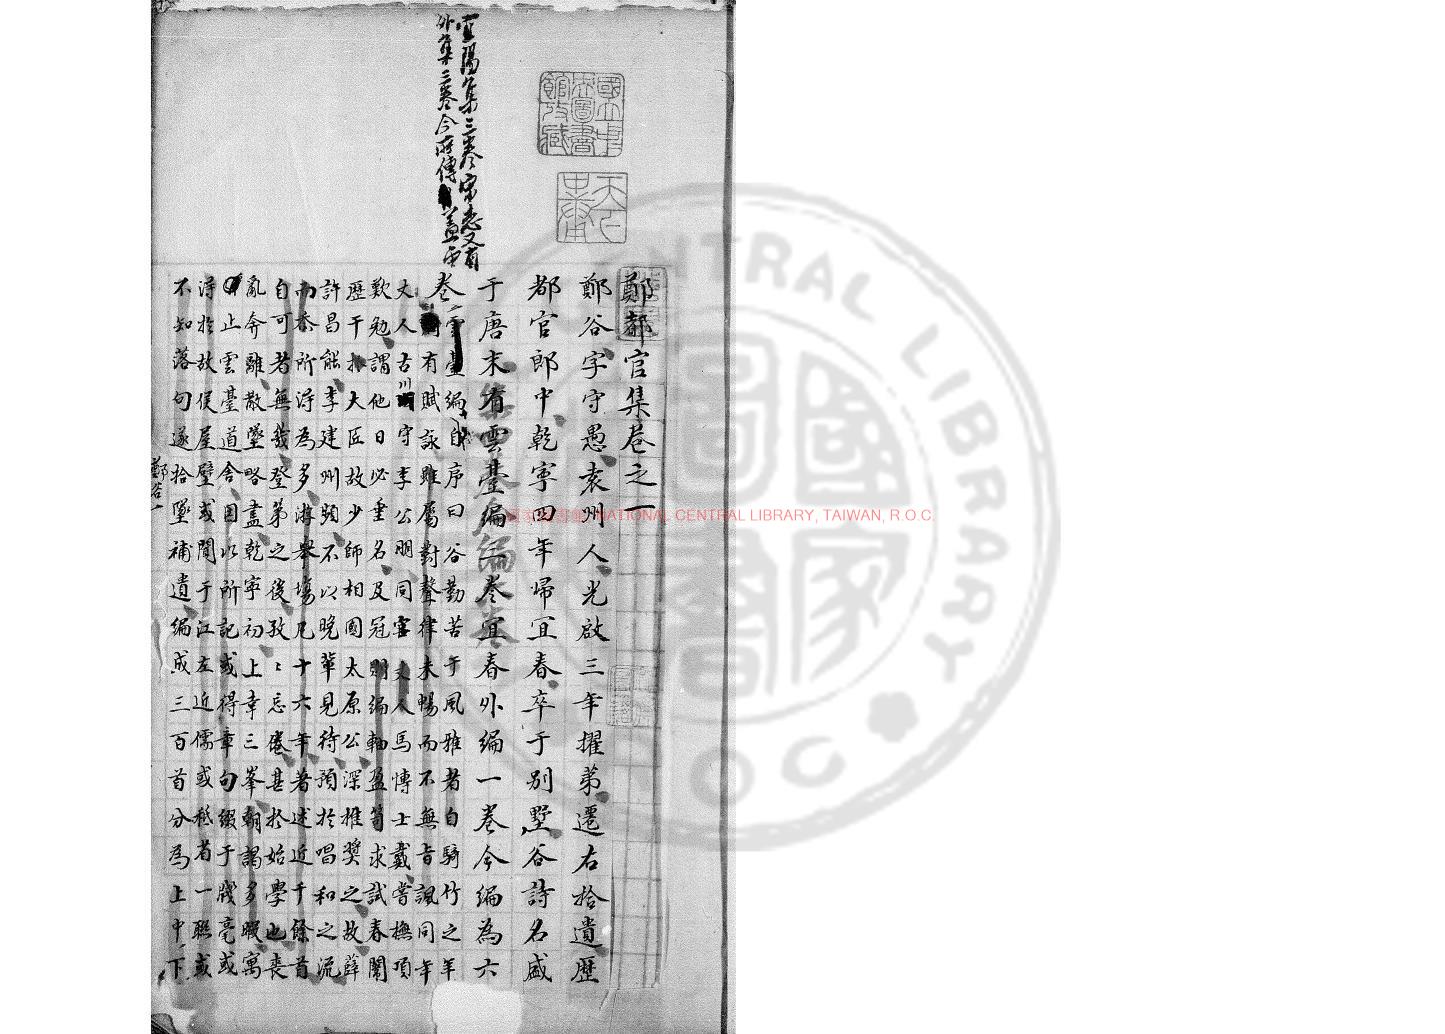 鄭都官集卷之一
鄭谷字守愚袁州人光啟三年擢第遷右拾遺歷
都官郎中乾寧四年歸宜春卒于別墅谷詩名盛
于唐末有雲臺編三卷宜春外編一卷今編為六
卷
雲臺編自序曰谷勤苦于風雅者自騎竹之年
有賦詠雖屬對聲律未暢而不無旨諷同年
丈人古川守李公朋同官丈人馬博士戴嘗撫頂
歎勉謂他日必垂名及冠則編軸盈笥求試春闈
歷干於大匠故少師相國太原公深推獎之故薛
許昌能李建州頻不以晚輩見待預於唱和之流
而忝所得為多游舉場凡十六年著述近千餘首
自可者無幾登第之後孜孜忘倦甚於始學也喪
亂奔離散墜略盡乾寧初上幸三峯朝謁多暇寓
止雲臺道舍因以所記或得章句綴于牋毫或
得於故侯屋壁或聞于江左近儒或秪省一聯或
不知落句遂拾墜補遺編成三百首分為上中下
鄭谷一
宜陽集三卷宋志又有
外集三卷今所傳蓋
國立中央圖書館收藏
NATIONAL CENTRAL LIBRARY, TAIWAN, R.O.C.
CENTRAL LIBRARY